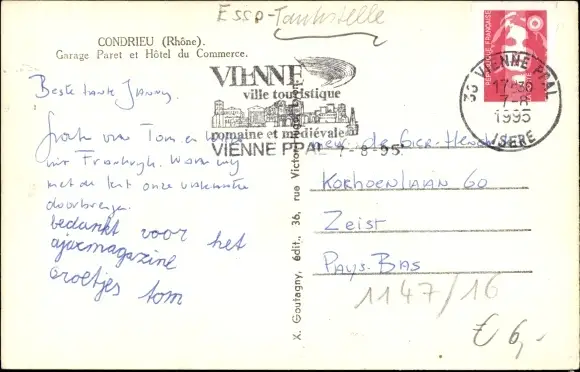 Esso-Tankstelle
CONDRIEU (Rhône).
Garage Paret et Hôtel du Commerce.
Beste tante Janny,
VIENNE
ville touristique
romaine et médiévale
VIENNE PPAL 7-8-95
38 VIENNE PPAL
17H30
7-8
1995
ISERE
REPUBLIQUE FRANÇAISE
Groeten van Tom en
uit Frankrijk. Waar wij
met de tent onze vakantie
doorbrengen.
bedankt voor het
ajaxmagazine
Groetjes tom
X. Goutagny, édit., 36, rue Victor
Korhoenlaan 60
Zeist
Pays-Bas
1147/16
€ 6,-